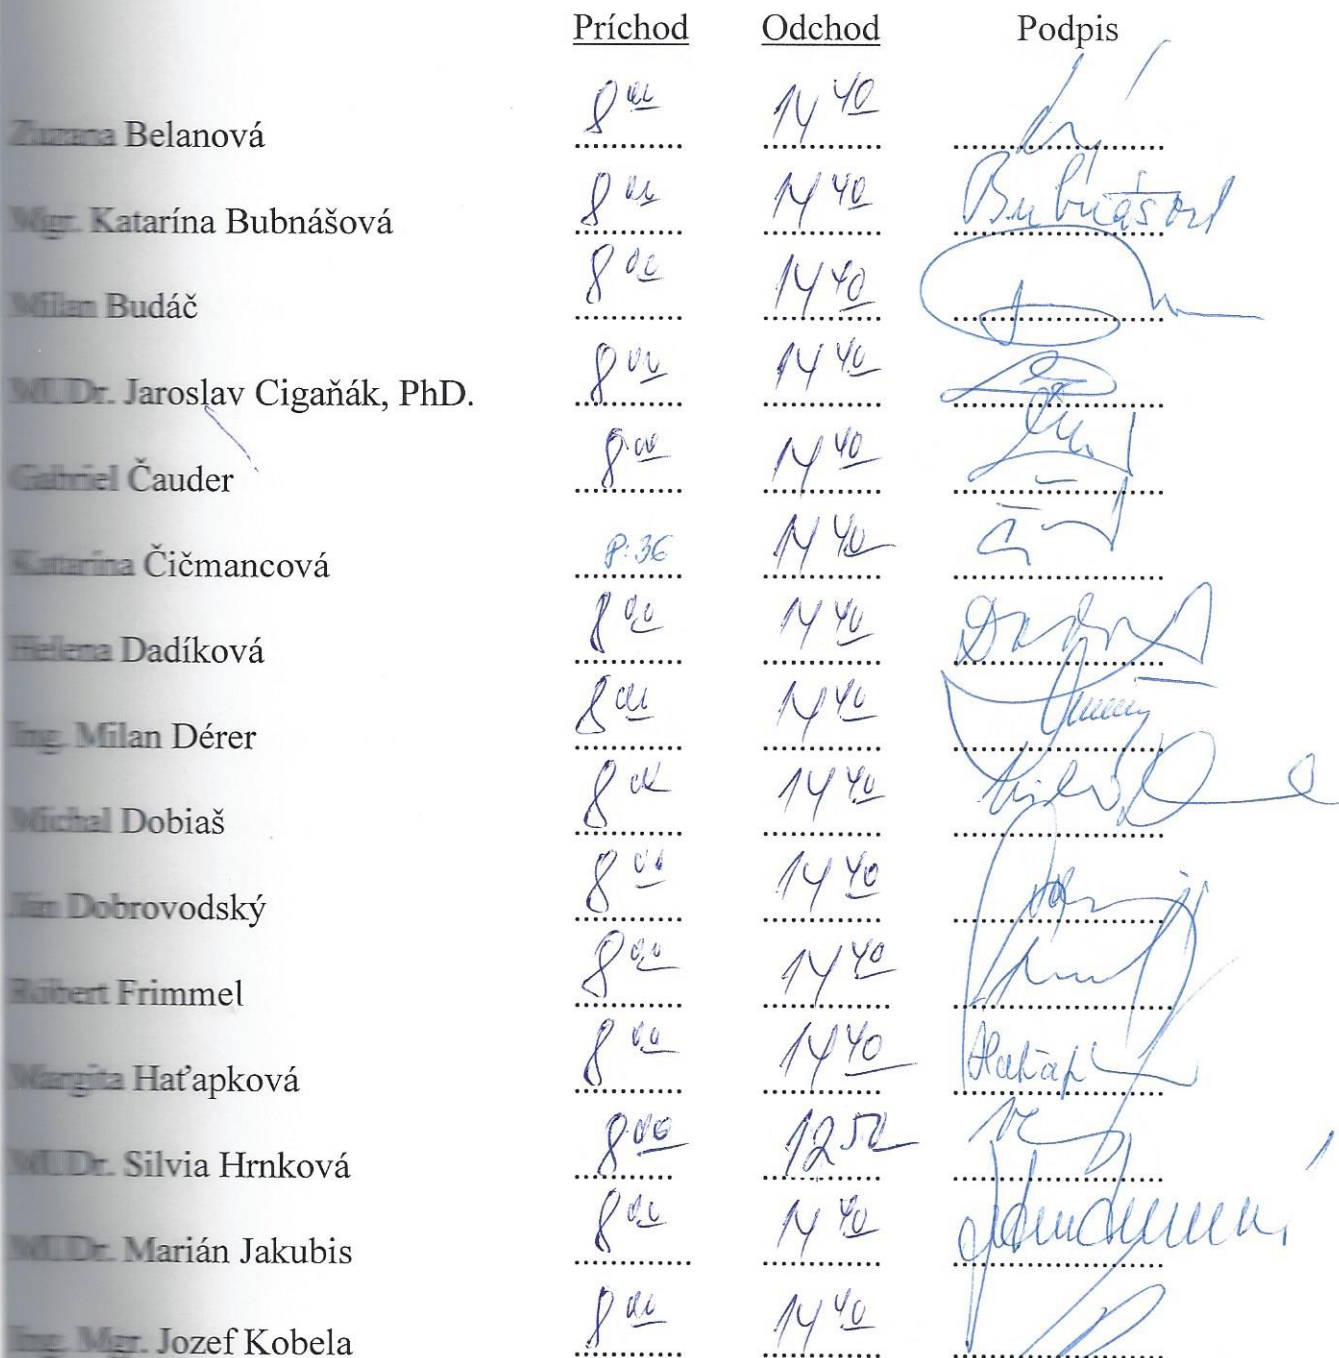 Príchod Odchod Podpis
Zuzana Belanová 8 00 14 40
Mgr. Katarína Bubnášová 8 00 14 40 Bubnášová
Milan Budáč 8 00 14 40
MUDr. Jaroslav Cigaňák, PhD. 8 00 14 40
Gabriel Čauder 8 00 14 40
Katarína Čičmancová 8:36 14 40
Helena Dadíková 8 00 14 40
Ing. Milan Dérer 8 00 14 40
Michal Dobiaš 8 00 14 40
Ján Dobrovodský 8 00 14 40
Róbert Frimmel 8 00 14 40
Margita Haťapková 8 00 14 40
MUDr. Silvia Hrnková 8 00 12 50
MUDr. Marián Jakubis 8 00 14 40
Ing. Mgr. Jozef Kobela 8 00 14 40